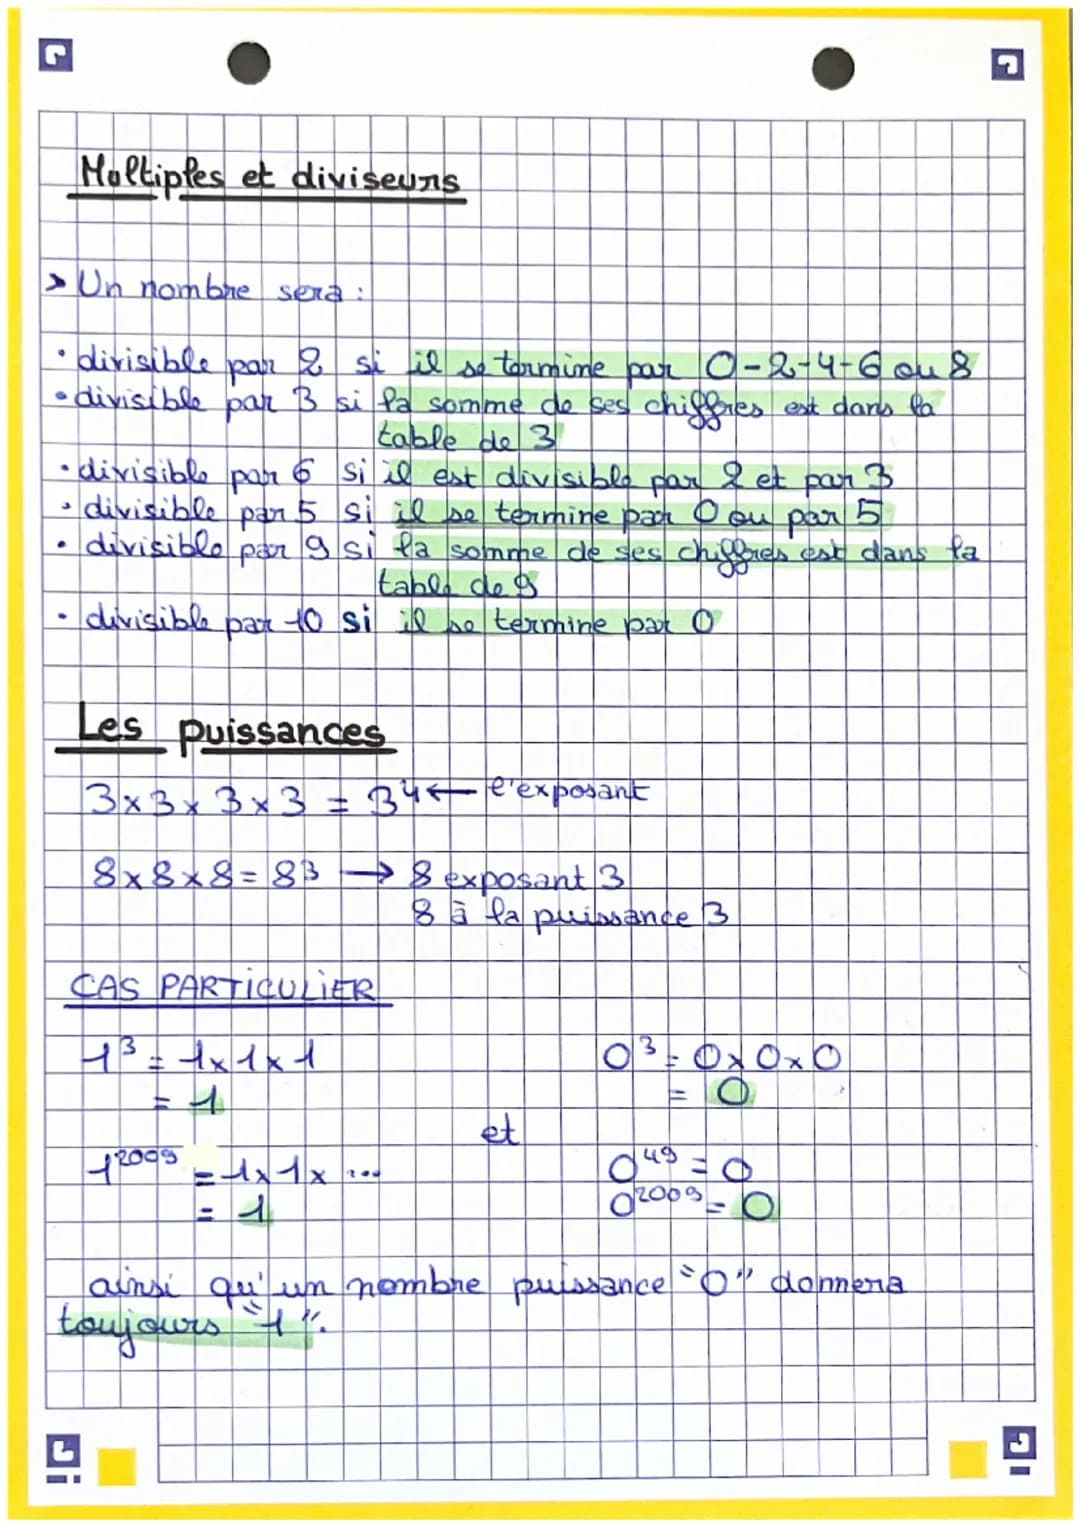 Multiples et diviseurs
> Un nombre sera :
• divisible par 2 si il se termine par 0-2-4-6 ou 8
• divisible par 3 si la somme de ses chiffres est dans la
table de 3
• divisible par 6 si il est divisible par 2 et par 3
• divisible par 5 si il se termine par 0 ou par 5
• divisible par 9 si la somme de ses chiffres est dans la
table de 9
• divisible par 10 si il se termine par 0
Les puissances
3 x 3 x 3 x 3 = 3⁴ ← l'exposant
8 x 8 x 8 = 8³ → 8 exposant 3
8 à la puissance 3
CAS PARTICULIER
1³ = 1 x 1 x 1
= 1
0³ = 0 x 0 x 0
= 0
et
1²⁰⁰⁹ = 1 x 1 x ...
= 1
0⁴⁹ = 0
0²⁰⁰⁹ = 0
ainsi qu'un nombre puissance "0" donnera
toujours "1".